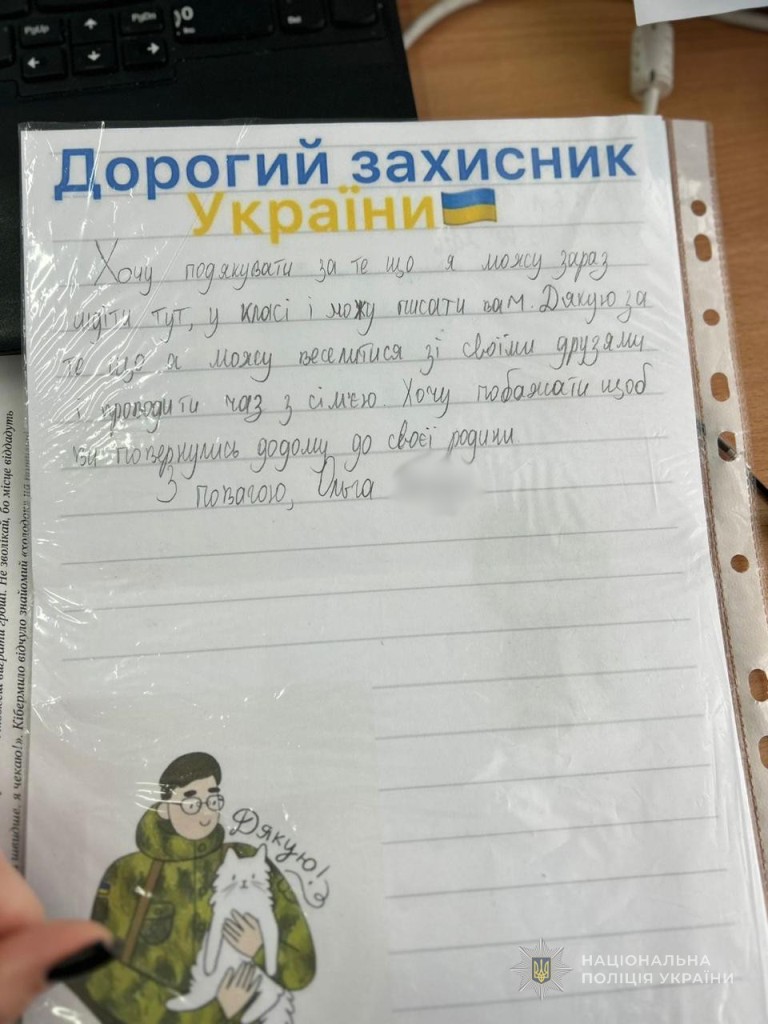 PgUp
PgDn
Дорогий захисник
України
Хочу подякувати за те що я можу зараз
сидіти тут, у класі і можу писати вам. Дякую за
те що я можу веселитися зі своїми друзями
і проводити час з сім'єю. Хочу побажати щоб
ви повернулись додому до своєї родини
З повагою, Ольга
Дякую!
виграти гроші. Не зволікай, бо місце віддадуть
швидше, я чекаю!». Кібермило відчуло знайомий «холодок»
НАЦІОНАЛЬНА
ПОЛІЦІЯ УКРАЇНИ